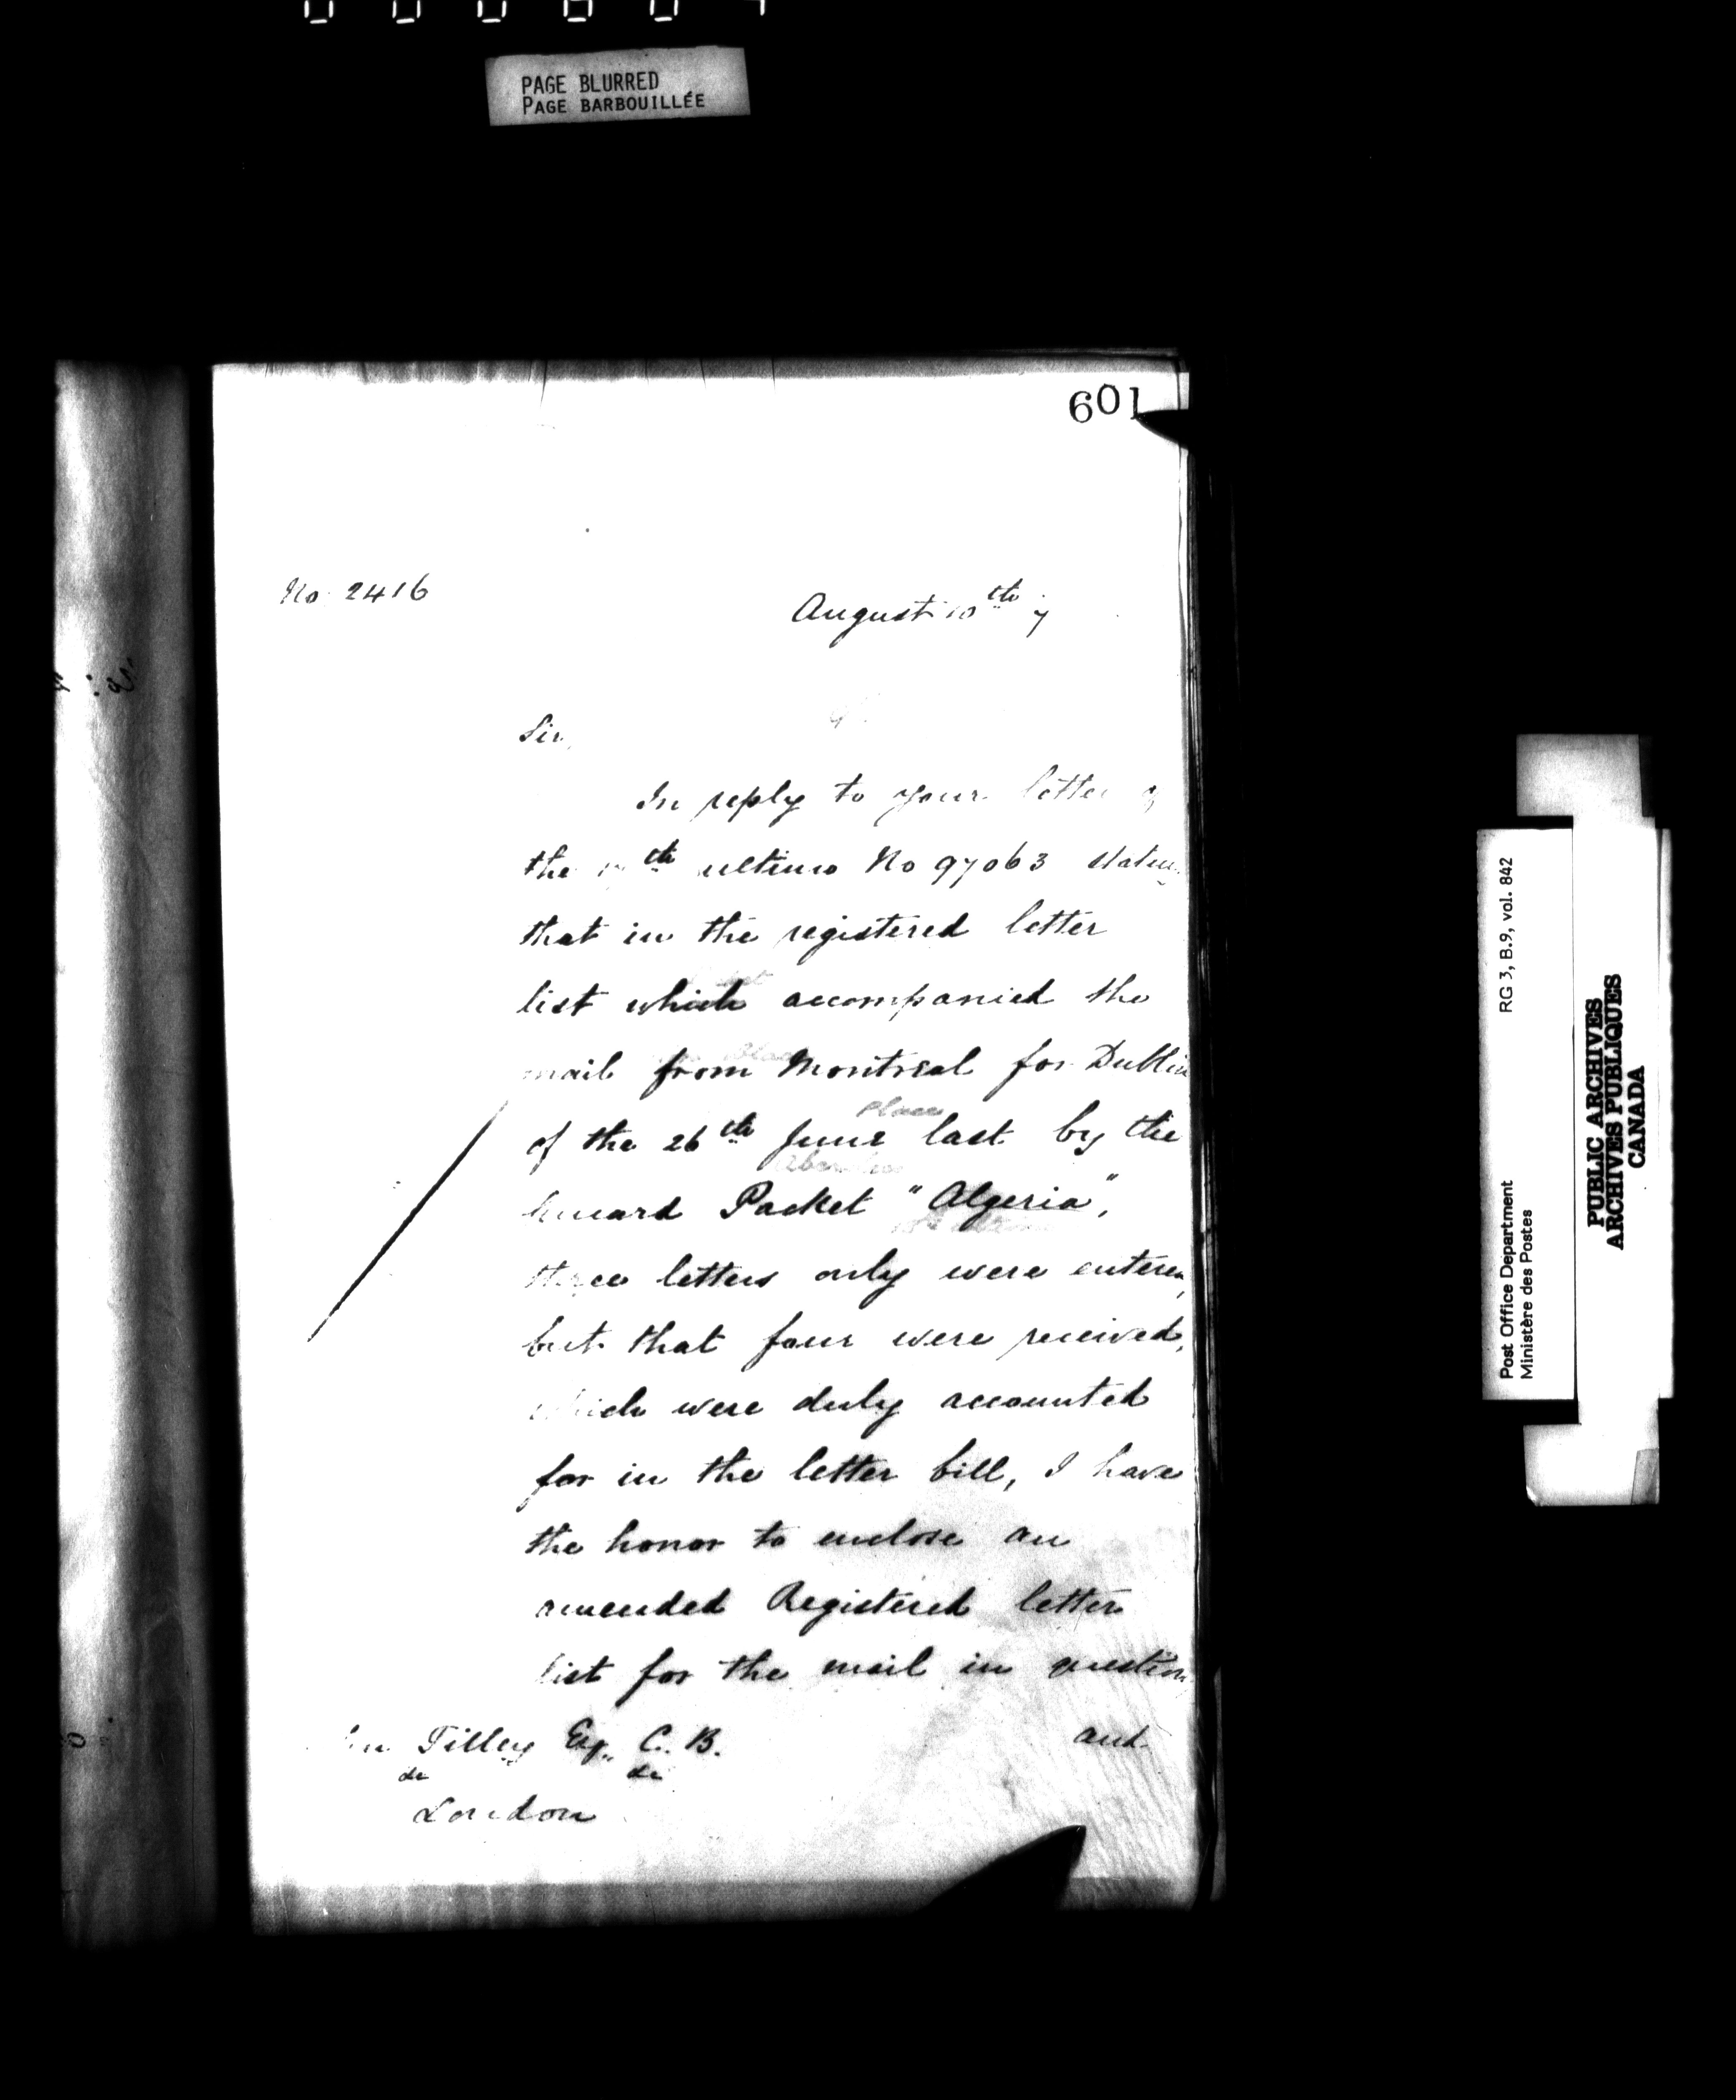 PAGE BLURRED
PAGE BARBOUILLÉE
601
No 2416
August 10th 7
Sir,
In reply to your letter of
the 17th ultimo No 97063 stating
that in the registered letter
list which accompanied the
mail from Montreal for Dublin
of the 26th June last by the
Cunard Packet "Algeria",
three letters only were entered,
but that four were received,
which were duly accounted
for in the letter bill, I have
the honor to enclose an
amended Registered letter
list for the mail in question
and
Tilley Esq. C. B.
&c &c
London
Post Office Department RG 3, B.9, vol. 842
Ministère des Postes
PUBLIC ARCHIVES
ARCHIVES PUBLIQUES
CANADA